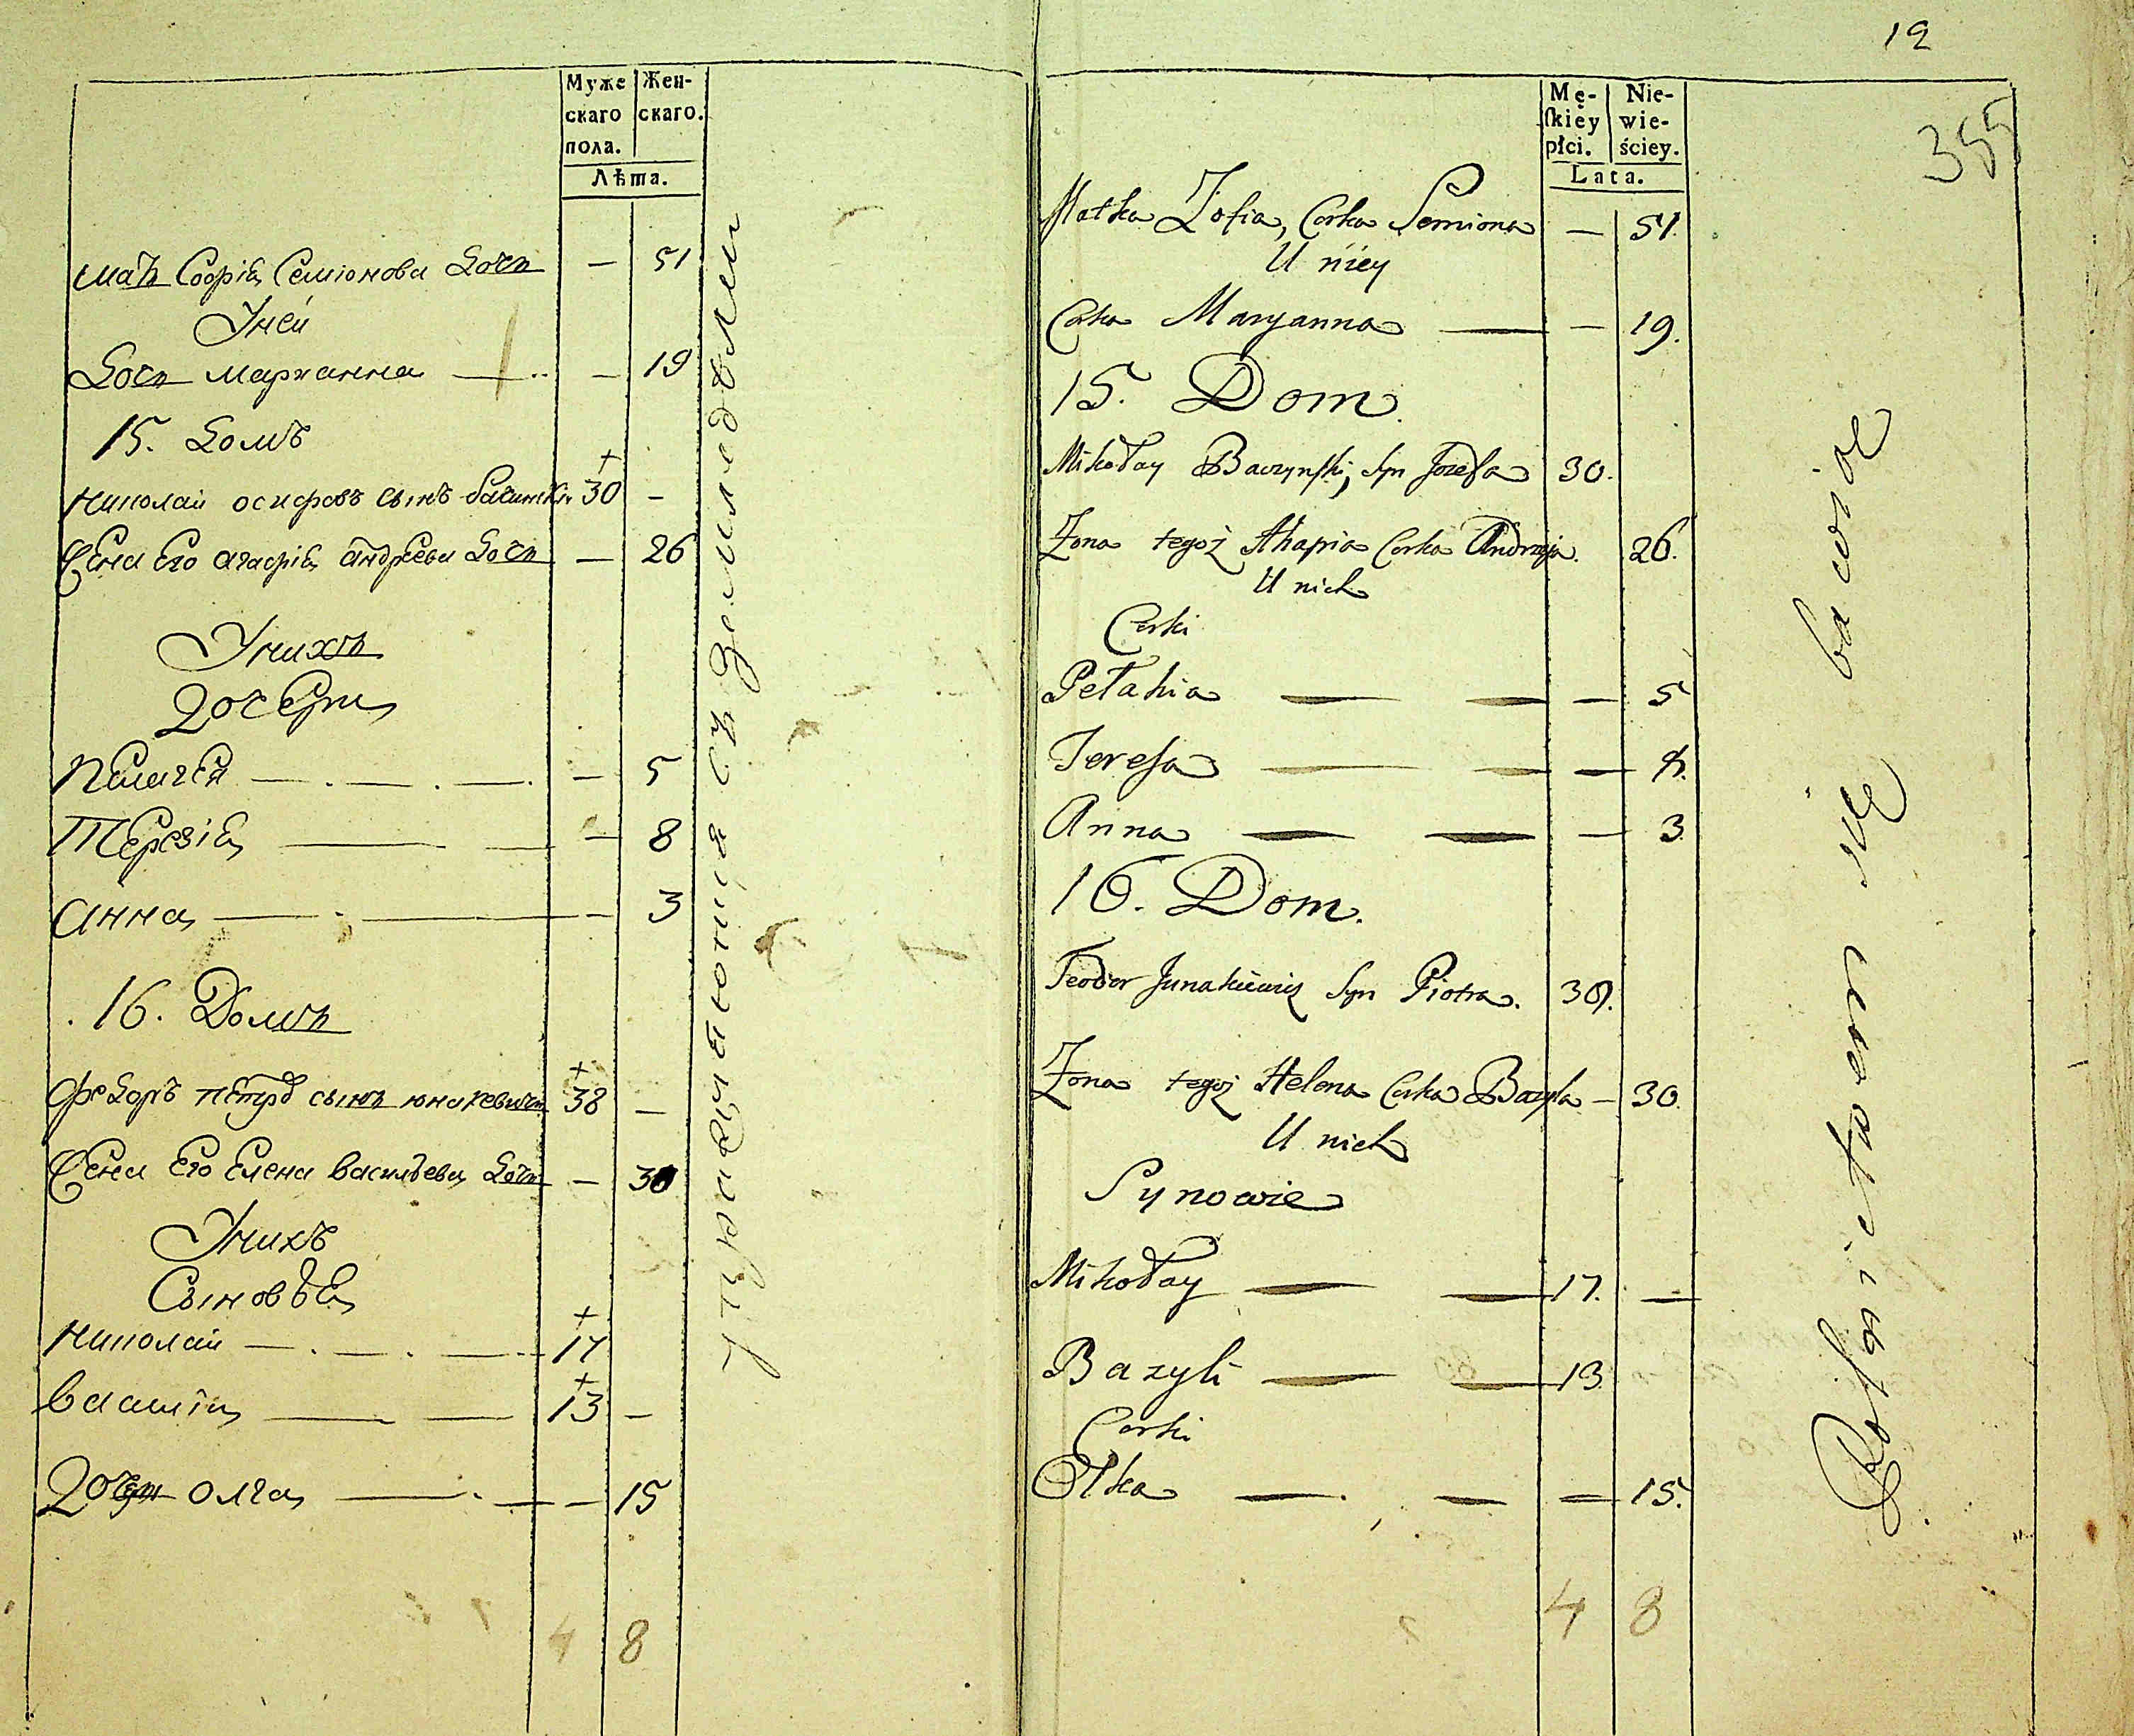 Муже
скаго
пола.
Жен-
скаго.
Лѣта.
мать Софія Семіонова дочь — 51
У ней
Дочь Марианна — — 19
15. Домъ
Николай осифовъ сынъ Бачинскій 30 —
Жена Его Агафія андреева дочь — 26
У нихъ
Дочери
Пелагея — — — 5
Терезія — — — 8
Анна — — — 3
16. Домъ
Федоръ петровъ сынъ юнакевичъ 38 —
Жена Его Елена васильева дочь — 30
У нихъ
Сыновья
Николай — — — 17
Василій — — 13 —
Дочери Олга — — — 15
4 8
упражняются съ земледелием
12
355
Mę-
ſkiey
płci.
Nie-
wie-
ściey.
Lata.
Matka Zofia, Corka Semiona — 51.
U niey
Corka Maryanna — — 19.
15. Dom.
Mikołay Baczynſki, syn Jozefa 30.
Zona tegoż Ahapia Corka Andrzeja. 26.
U nich
Corki
Pełahia — — — 5
Tereſa — — — 8.
Anna — — — 3
16. Dom.
Teodor Junakiewicz Syn Piotra. 38.
Zona tegoż Helena Corka Bazyla — 30.
U nich
Synowie
Mikołay — — 17. —
Bazyli — — 13.
Corki
Olka — — — 15.
4 8
Rolnictwem się bawią